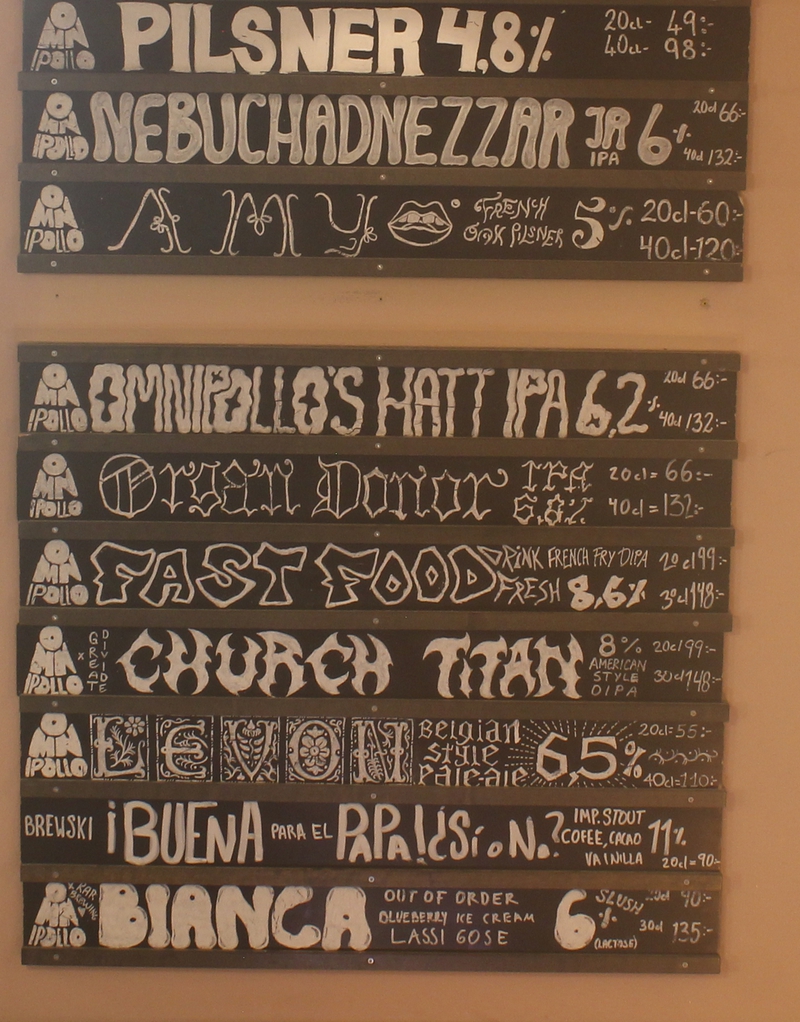 OMNIPOLLO PILSNER 4,8% 20cl- 49:-
40cl- 98:-
OMNIPOLLO NEBUCHADNEZZAR JR IPA 6% 20cl 66:-
40cl 132:-
OMNIPOLLO AMY FRENCH 5% 20cl-60:-
PILSNER 40cl-120:-
OMNIPOLLO OMNIPOLLO'S HATT IPA 6,2% 20cl 66:-
40cl 132:-
OMNIPOLLO Organ Donor IPA 20cl= 66:-
6,8% 40cl=132:-
OMNIPOLLO FAST FOOD DRINK FRENCH FRY DIPA 20cl 99:-
FRESH 8,6% 30cl 148:-
OMNIPOLLO x GREAT DIVIDE CHURCH TITAN 8% 20cl 99:-
AMERICAN
STYLE 30cl 148:-
DIPA
OMNIPOLLO LEVON Belgian 6,5% 20cl=55:-
style
Pale ale 40cl=110:-
BREWSKI ¡BUENA PARA EL PAPALUSioN.? IMP. STOUT 11%
COFEE, CACAO
VAINILLA 20cl=90:-
OMNIPOLLO x BIANCA OUT OF ORDER 6% SLUSH 90:-
BLUEBERRY ICE CREAM 30cl 135:-
LASSI GOSE (LACTOSE)